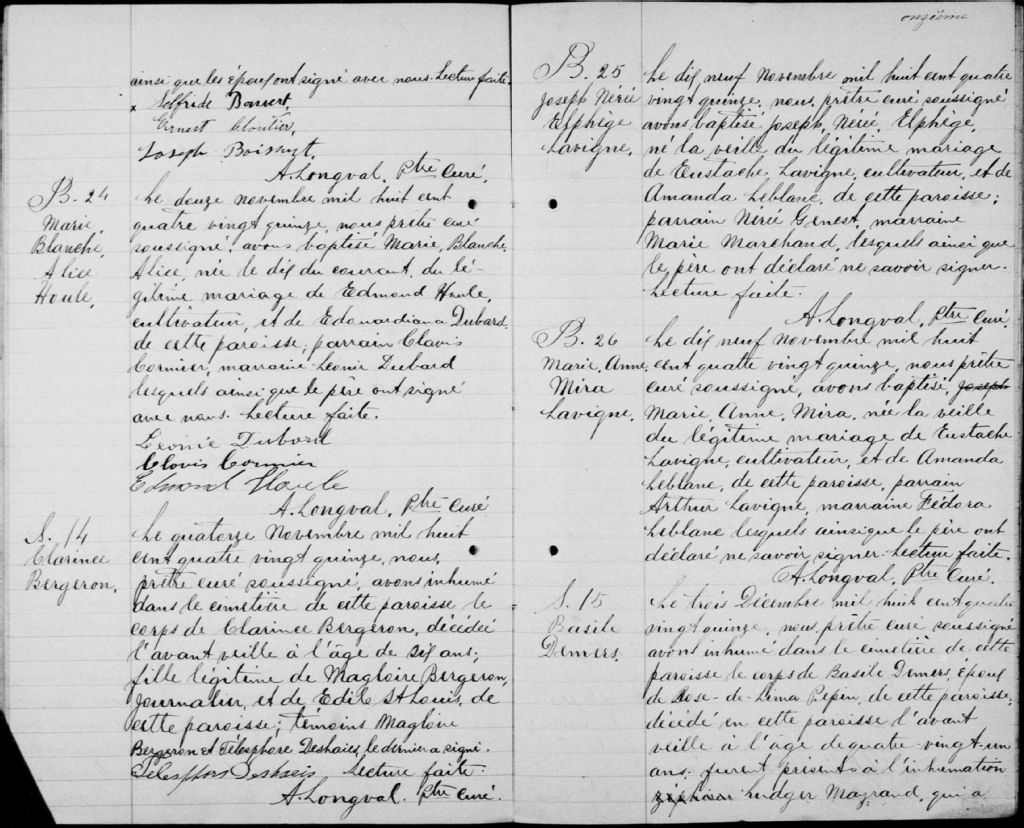 ainsi que les époux ont signé avec nous. Lecture faite.
x Selfride Boisvert,
Ernest Cloutier,
Joseph Boisvert.
A. Longval, Ptre Curé.
B. 24
Marie,
Blanche,
Alice
Houle,
Le douze novembre mil huit cent
quatre vingt quinze, nous prêtre curé
soussigné avons baptisé Marie, Blanche,
Alice, née le dix du courant, du lé-
gitime mariage de Edmond Houle,
cultivateur, et de Edouardiana Dubord,
de cette paroisse; parrain Clovis
Cormier, marraine Léonie Dubord
lesquels ainsi que le père ont signé
avec nous. Lecture faite.
Léonie Dubord
Clovis Cormier
Edmond Houle
A. Longval, Ptre Curé
S. 14
Clarince
Bergeron,
Le quatorze Novembre mil huit
cent quatre vingt quinze, nous,
prêtre curé soussigné, avons inhumé
dans le cimetière de cette paroisse le
corps de Clarince Bergeron, décédée
l'avant veille à l'âge de six ans;
fille légitime de Magloire Bergeron,
journalier, et de Edile St Louis, de
cette paroisse; témoins Magloire
Bergeron et Télesphore Deshaies, le dernier a signé.
Télesphore Deshaies Lecture faite.
A. Longval. Ptre Curé.
onzième
B. 25
Joseph Nérée
Elphège
Lavigne,
Le dix neuf Novembre mil huit cent quatre
vingt quinze, nous, prêtre curé soussigné
avons baptisé Joseph, Nérée, Elphège,
né la veille du légitime mariage
de Eustache Lavigne, cultivateur, et de
Amanda Leblanc, de cette paroisse;
parrain Nérée Genest, marraine
Marie Marchand, lesquels ainsi que
le père ont déclaré ne savoir signer.
Lecture faite.
A. Longval, Ptre Curé.
B. 26
Marie, Anne,
Mira
Lavigne,
Le dix neuf Novembre mil huit
cent quatre vingt quinze, nous prêtre
curé soussigné, avons baptisé, Joseph
Marie, Anne, Mira, née la veille
du légitime mariage de Eustache
Lavigne, cultivateur, et de Amanda
Leblanc, de cette paroisse, parrain
Arthur Lavigne, marraine Fédora
Leblanc lesquels ainsi que le père ont
déclaré ne savoir signer. Lecture faite.
A. Longval, Ptre Curé.
S. 15
Basile
Demers.
Le trois Décembre mil huit cent quatre
vingt quinze, nous, prêtre curé soussigné
avons inhumé dans le cimetière de cette
paroisse le corps de Basile Demers, époux
de Rose-de-Lima Pépin, de cette paroisse;
décédé en cette paroisse l'avant
veille à l'âge de quatre-vingt-un
ans. furent présents à l'inhumation
Ludger Magrand, qui a